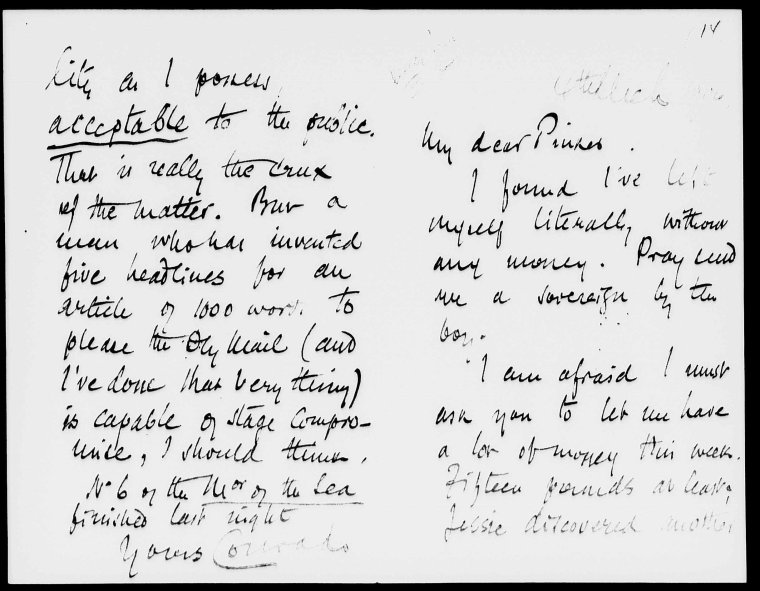 lity as I possess,
acceptable to the public.
That is really the crux
of the matter. But a
man who has invented
five headlines for an
article of 1000 words to
please the Dly Mail (and
I've done that very thing)
is capable of stage compro-
mise, I should think.
No 6 of the Mor of the Sea
finished last night
Yours Conrad
14
My dear Pinker.
I found I've left
myself literally without
any money. Pray send
me a sovereign by the
boy.
I am afraid I must
ask you to let me have
a lot of money this week.
Fifteen pounds at least;
Jessie discovered another